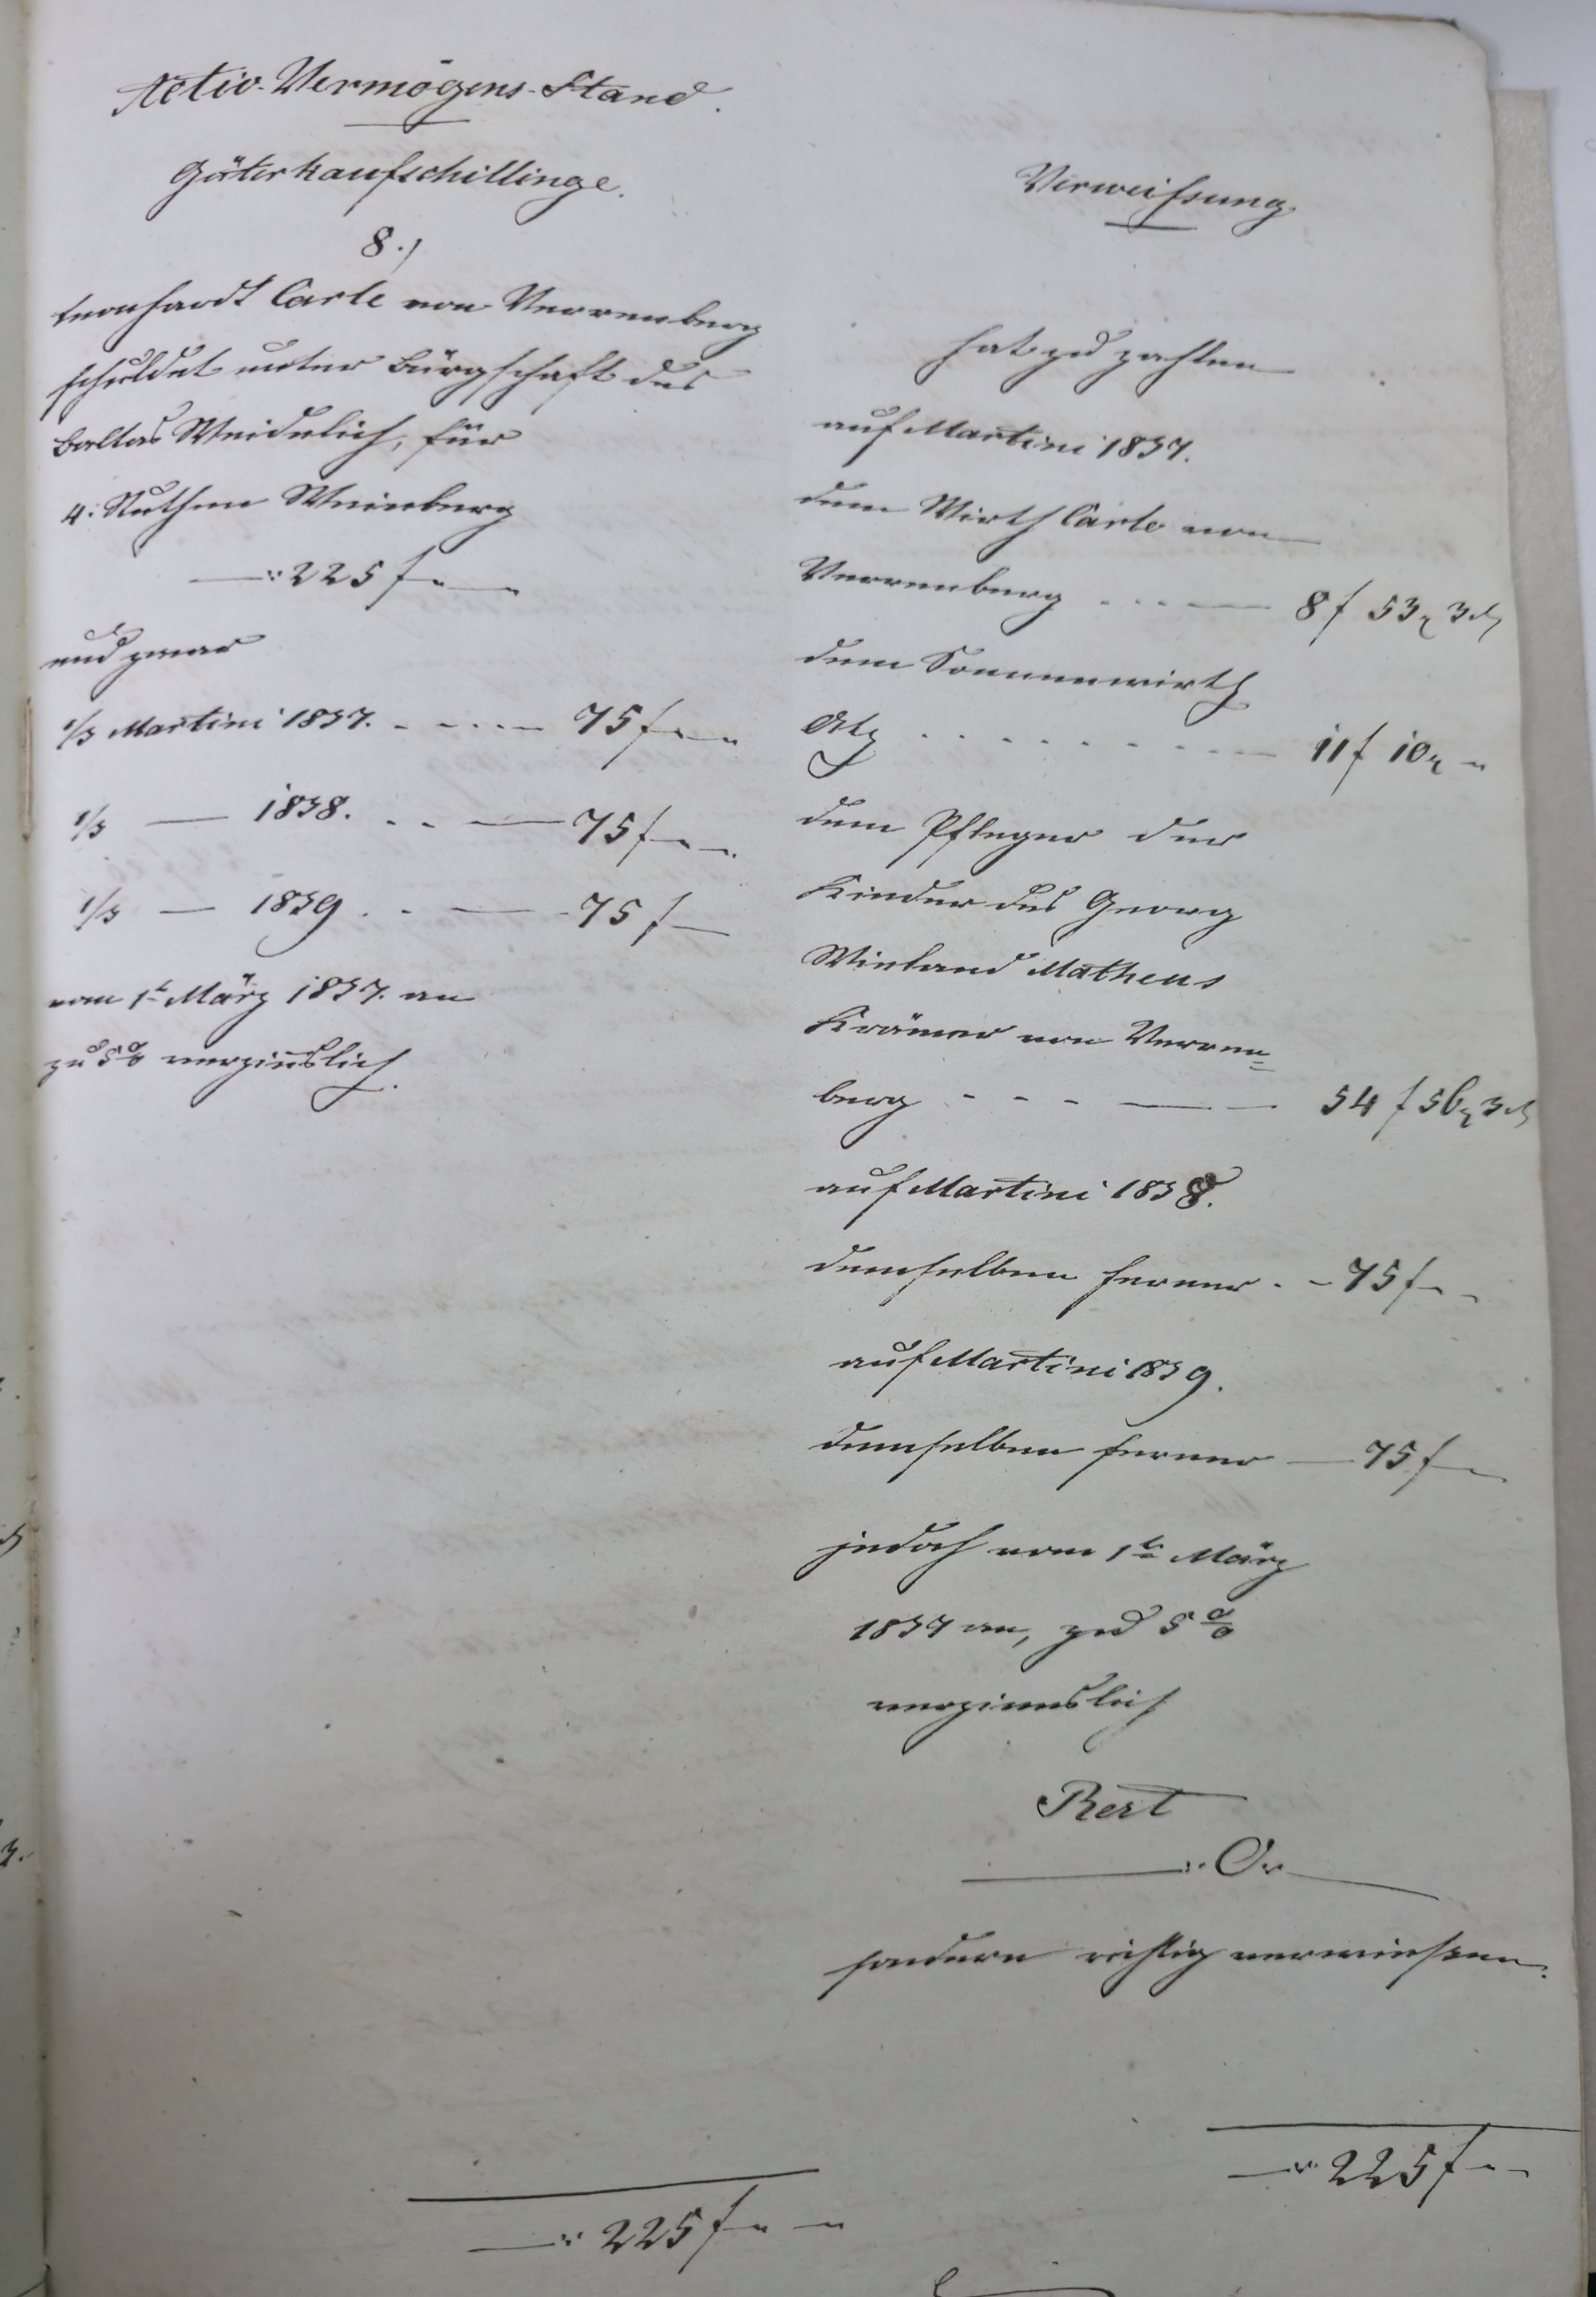 Activ-Vermögens-Stand.
Güterkaufschillinge.
8.)
Leonhardt Carle von Verrenberg
schuldet unter Bürgschaft des
Baltas Weidelich, für
4. Ruthen Weinberg
225 f
und zwar
1/3 Martini 1837. - - - - 75 f
1/3 — 1838. - - — 75 f
1/3 — 1839. - — 75 f
vom 1t März 1837. an
zu 5 % verzinslich.
Verweißung.
hat zu zahlen
auf Martini 1837.
dem Wirth Carle von
Verrenberg - - - — 8 f 53 x 3 d
dem Sonnenwirth
- - - - - - - 11 f 10 x
dem Pfleger der
Kinder des Georg
Wieland Matheus
Krämer von Verren=
berg - - - — 54 f 56 x 3 d
auf Martini 1838.
demselben ferner - - 75 f
auf Martini 1839.
demselben ferner — 75 f
jedoch vom 1t März
1837 an, zu 5 %
verzinnslich
Rest
0
sondern richtig verwießen.
225 f
225 f